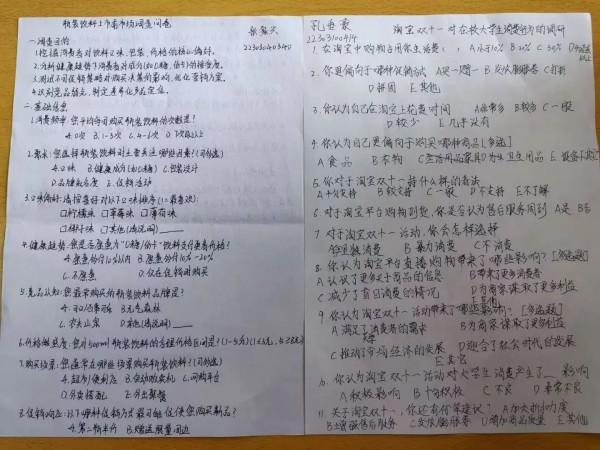 瓶装饮料上市前市场调查问卷
223030403410
一.调查目的
1.挖掘消费者对饮料口味、包装、价格的核心偏好。
2.分析健康趋势下消费者对成分(如0糖)、低卡的接受度。
3.测试不同促销策略对购买决策的影响,优化营销方案。
4.识别竞品弱点,制定差异化产品定位。
二.基础信息
1.消费频率:您平均每周购买瓶装饮料的次数是?
A.0次 B.1-3次 C.4-6次 D.7次及以上
2.需求:您选择瓶装饮料时主要关注哪些因素?(可多选)
A.口味 B.健康成分(如0糖) C.包装设计
D.品牌知名度 E.促销活动
3.口味偏好:请按喜好对以下口味排序(1=最喜欢):
□柠檬味 □草莓味 □薄荷味
□椰子味 □其他(请说明)____
4.健康趋势:您是否愿意为"0糖/低卡"饮料支付更高价格?
A.愿意支付10%以内 B.愿意支付10%-20%
C.不愿意 D.仅在促销时购买
5.竞品认知:您最常购买的瓶装饮料品牌是?
A.可口可乐 B.元气森林
C.农夫山泉 D.其他(请说明)____
6.价格敏感度:您对500ml瓶装饮料的合理价格区间是?
7.购买场景:您通常在哪些场景购买瓶装饮料?(可多选)
A.超市/便利店 B.自动贩卖机 C.网购平台
D.外卖搭配 E.外出聚餐
8.促销响应:以下哪种促销方式最可能促使您购买新品?
A.第二瓶半价 B.赠送限量周边
淘宝双十一对在校大学生消费行为的调研
22303100414
1.在淘宝中购物占用你生活费( ),A小于10% B 20% C 50%
2.你更偏向于哪种促销方法 A买一赠一 B发优惠券 C打折
D拼团 E其他
3.你认为自己在淘宝上花费时间 A非常多 B较多 C一般
D较少 E几乎没有
4.你认为自己更偏向于购买哪种商品[多选]
A食品 B衣物 C生活用品家具 D卫生用品 E
5.你对于淘宝双十一持什么样的看法
A十分支持 B较支持 C一般 D不支持 E不了解
6.对于淘宝平台购物到货,你是否认为售后服务周到 A是 B否
7.对于淘宝双十一活动,你会怎样选择
A理智消费 B暴力消费 C不消费
8.你认为淘宝平台直播购物带来了哪些影响?[多选题]
A认识了更多关于商品的信息 B带来了更多消费者
C减少了盲目消费的情况 D为商家谋取了更多利益
E其他
9.你认为双十一活动带来了哪些影响?[多选题]
A满足了消费者的需求 B为商家谋取了更多利益
C推动了市场经济的发展 D迎合了社会时代的发展
E其它
10.你认为淘宝双十一活动对大学生消费产生了__影响
A积极影响 B十分积极 C不良 D非常不良
11.关于淘宝双十一,你还有何某建议? A加大折扣力度
B增强售后服务 C发优惠券 D增加商品质量 E其他